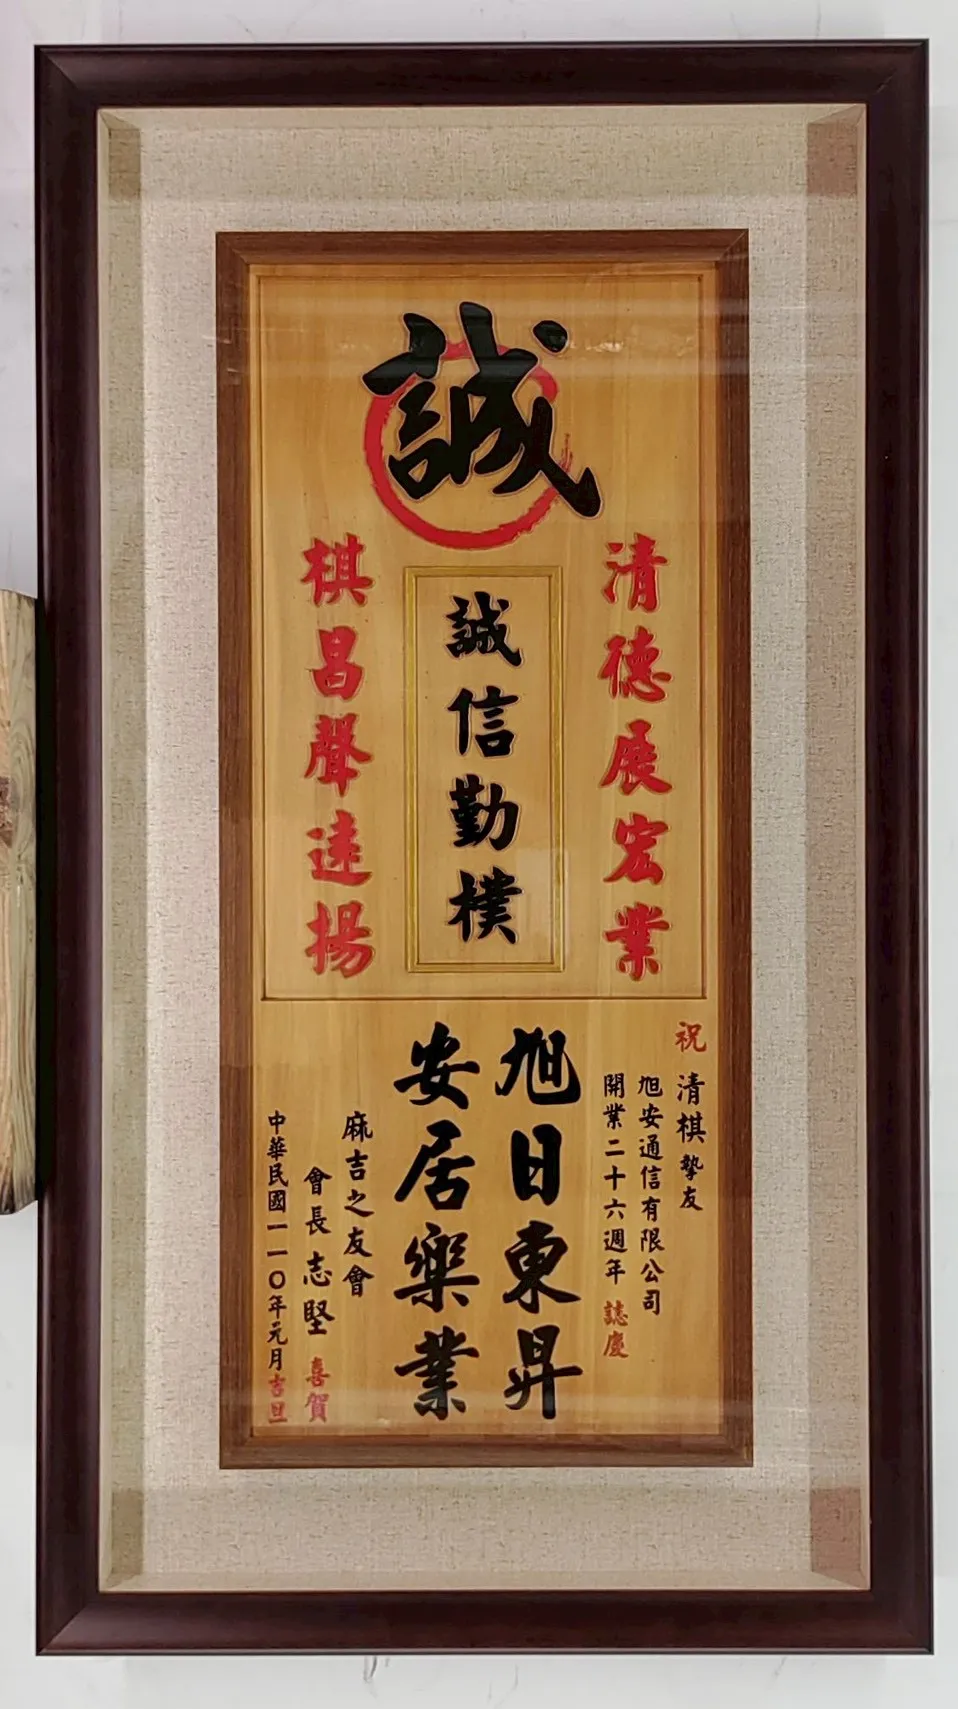 誠
清德展宏業
誠信勤樸
棋昌聲遠揚
祝
清棋摯友
旭安通信有限公司
開業二十六週年 誌慶
旭日東昇
安居樂業
麻吉之友會
會長 志堅 喜賀
中華民國一一〇年元月吉旦